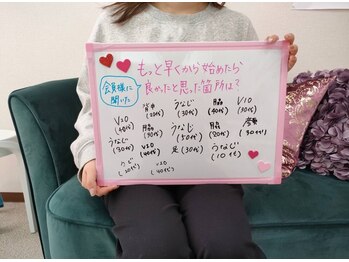 もっと早くから始めたら
会員様に
聞いた
良かったと思った箇所は?
背中 うなじ 脇 VIO
(20代) (30代) (40代) (30代)
VIO 脇 うなじ 脇 全身
(40代) (30代) (50代) (20代) (30代)
うなじ VIO 足(30代) うなじ
(30代) (40代) (10代)
ヒジ VIO
(20代) (40代)